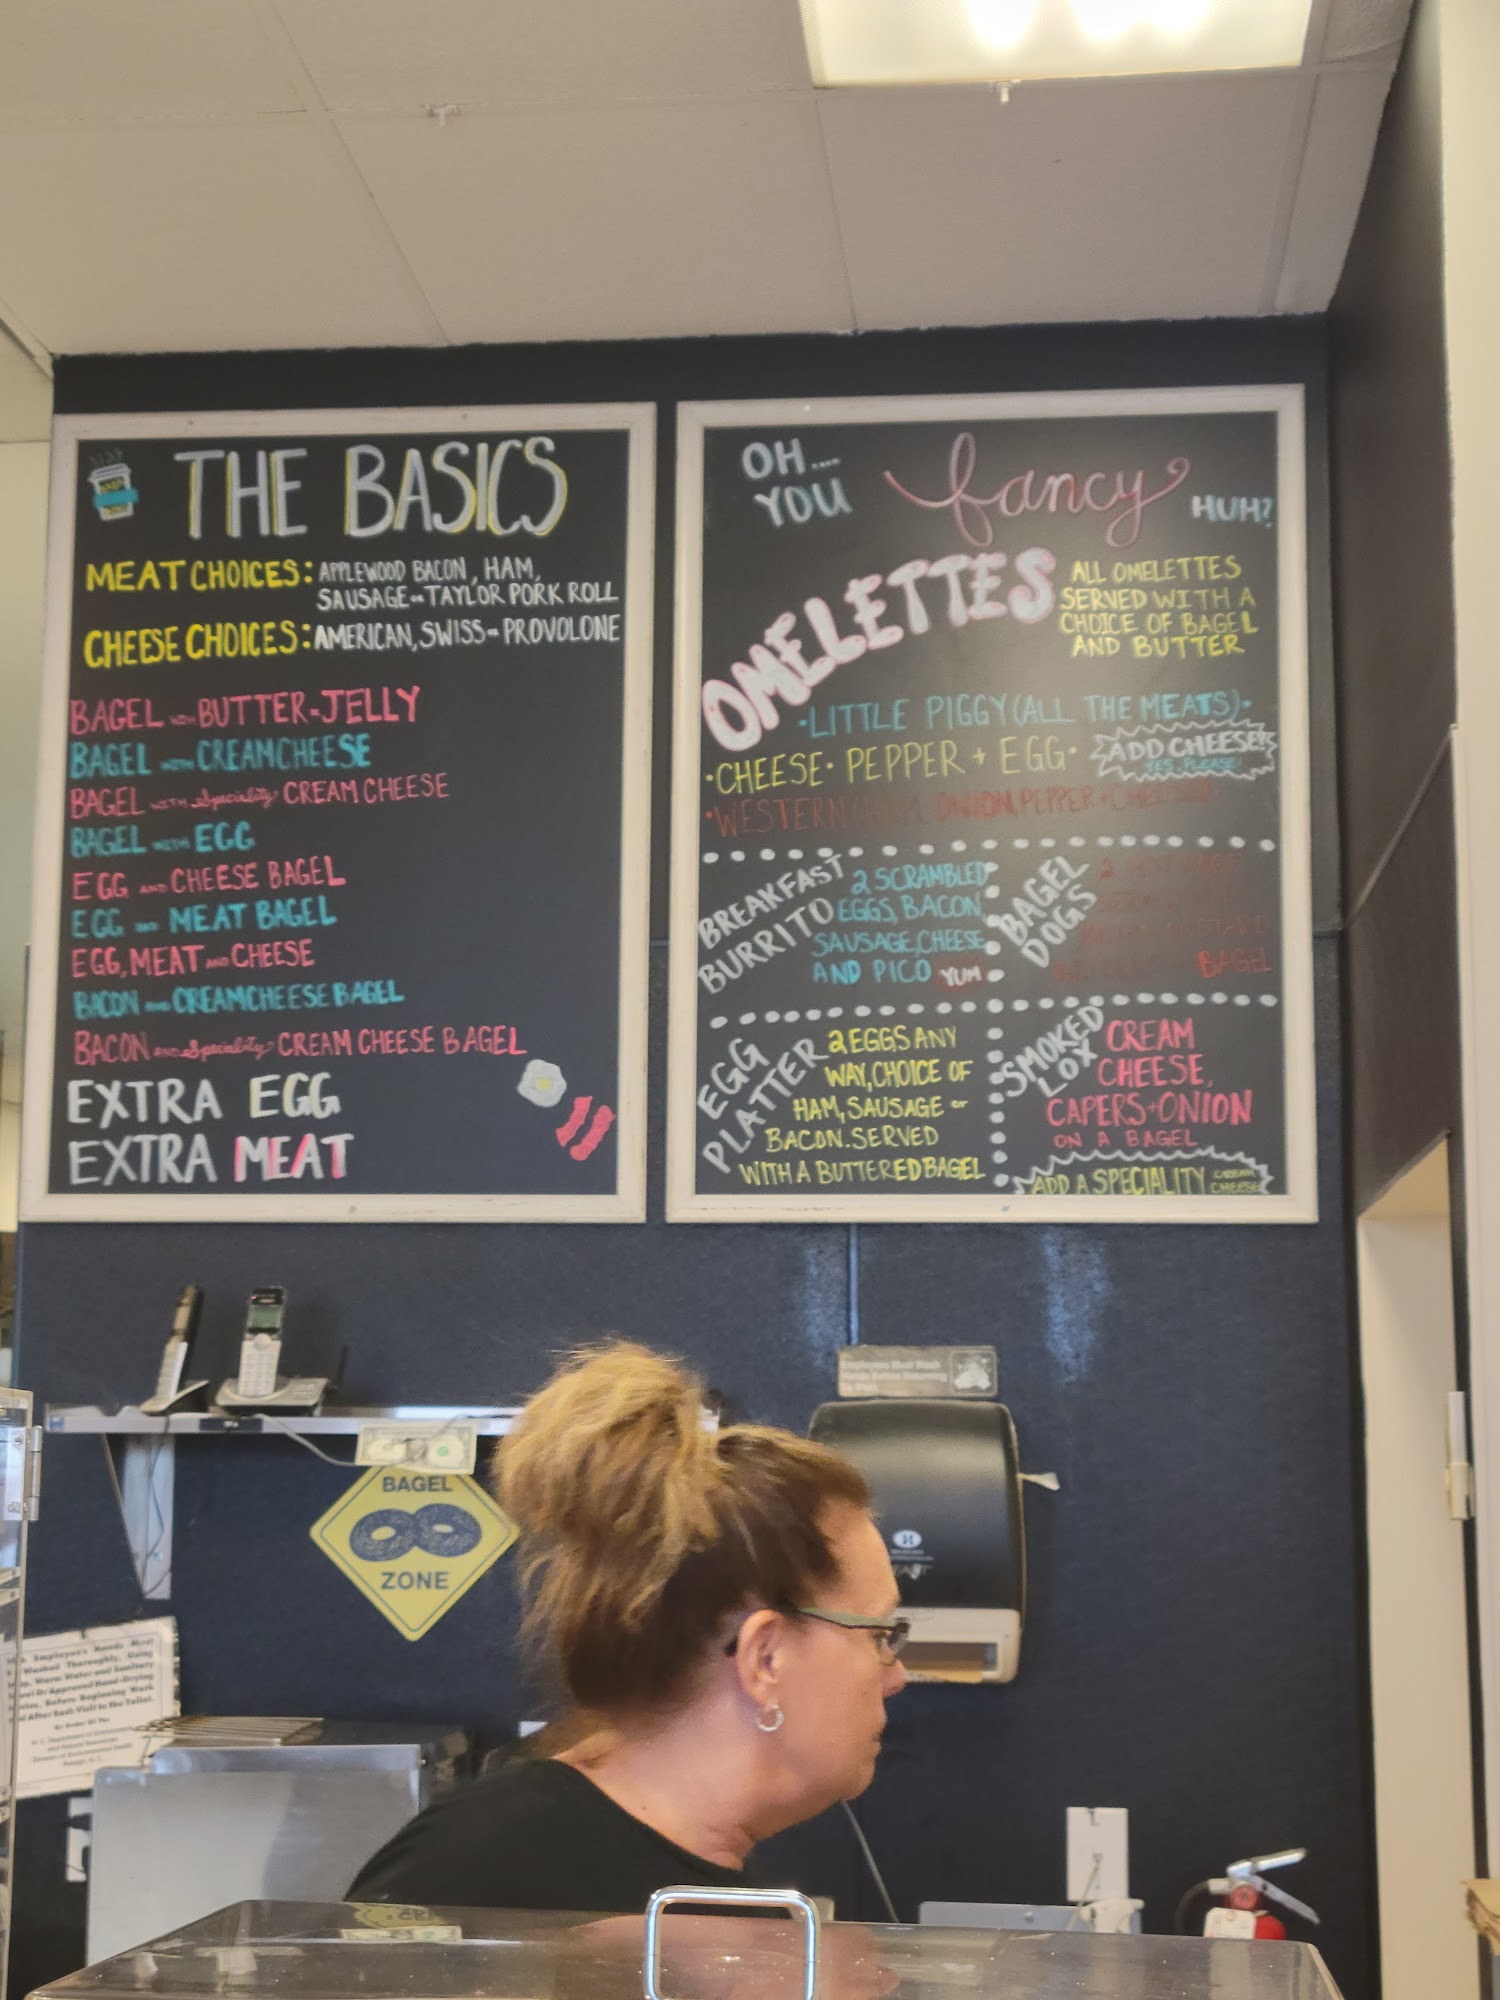 THE BASICS
MEAT CHOICES: APPLEWOOD BACON, HAM,
SAUSAGE OR TAYLOR PORK ROLL
CHEESE CHOICES: AMERICAN, SWISS OR PROVOLONE
BAGEL WITH BUTTER OR JELLY
BAGEL WITH CREAMCHEESE
BAGEL WITH Speciality CREAM CHEESE
BAGEL WITH EGG
EGG AND CHEESE BAGEL
EGG AND MEAT BAGEL
EGG, MEAT AND CHEESE
BACON AND CREAMCHEESE BAGEL
BACON AND Speciality CREAM CHEESE BAGEL
EXTRA EGG
EXTRA MEAT
OH....
YOU
fancy
HUH?
OMELETTES
ALL OMELETTES
SERVED WITH A
CHOICE OF BAGEL
AND BUTTER
•LITTLE PIGGY (ALL THE MEATS)•
•CHEESE• PEPPER + EGG•
ADD CHEESE!
YES, PLEASE!
•WESTERN ONION, PEPPER +
BREAKFAST
BURRITO
2 SCRAMBLED
EGGS, BACON,
SAUSAGE, CHEESE
AND PICO YUM
BAGEL
DOGS
2
BAGEL
EGG
PLATTER
2 EGGS ANY
WAY, CHOICE OF
HAM, SAUSAGE or
BACON. SERVED
WITH A BUTTERED BAGEL
SMOKED
LOX
CREAM
CHEESE,
CAPERS + ONION
ON A BAGEL
ADD A SPECIALITY CREAM
CHEESE
Employees Must Wash
Hands Before Returning
BAGEL
ZONE
Employee's Hands Must
Washed Thoroughly, Using
Warm Water and Sanitary
Or Approved Hand-Drying
Before Beginning Work
After Each Visit to the Toilet.
By Order Of The
N. C. Department of Environment
and Natural Resources
Division of Environmental Health